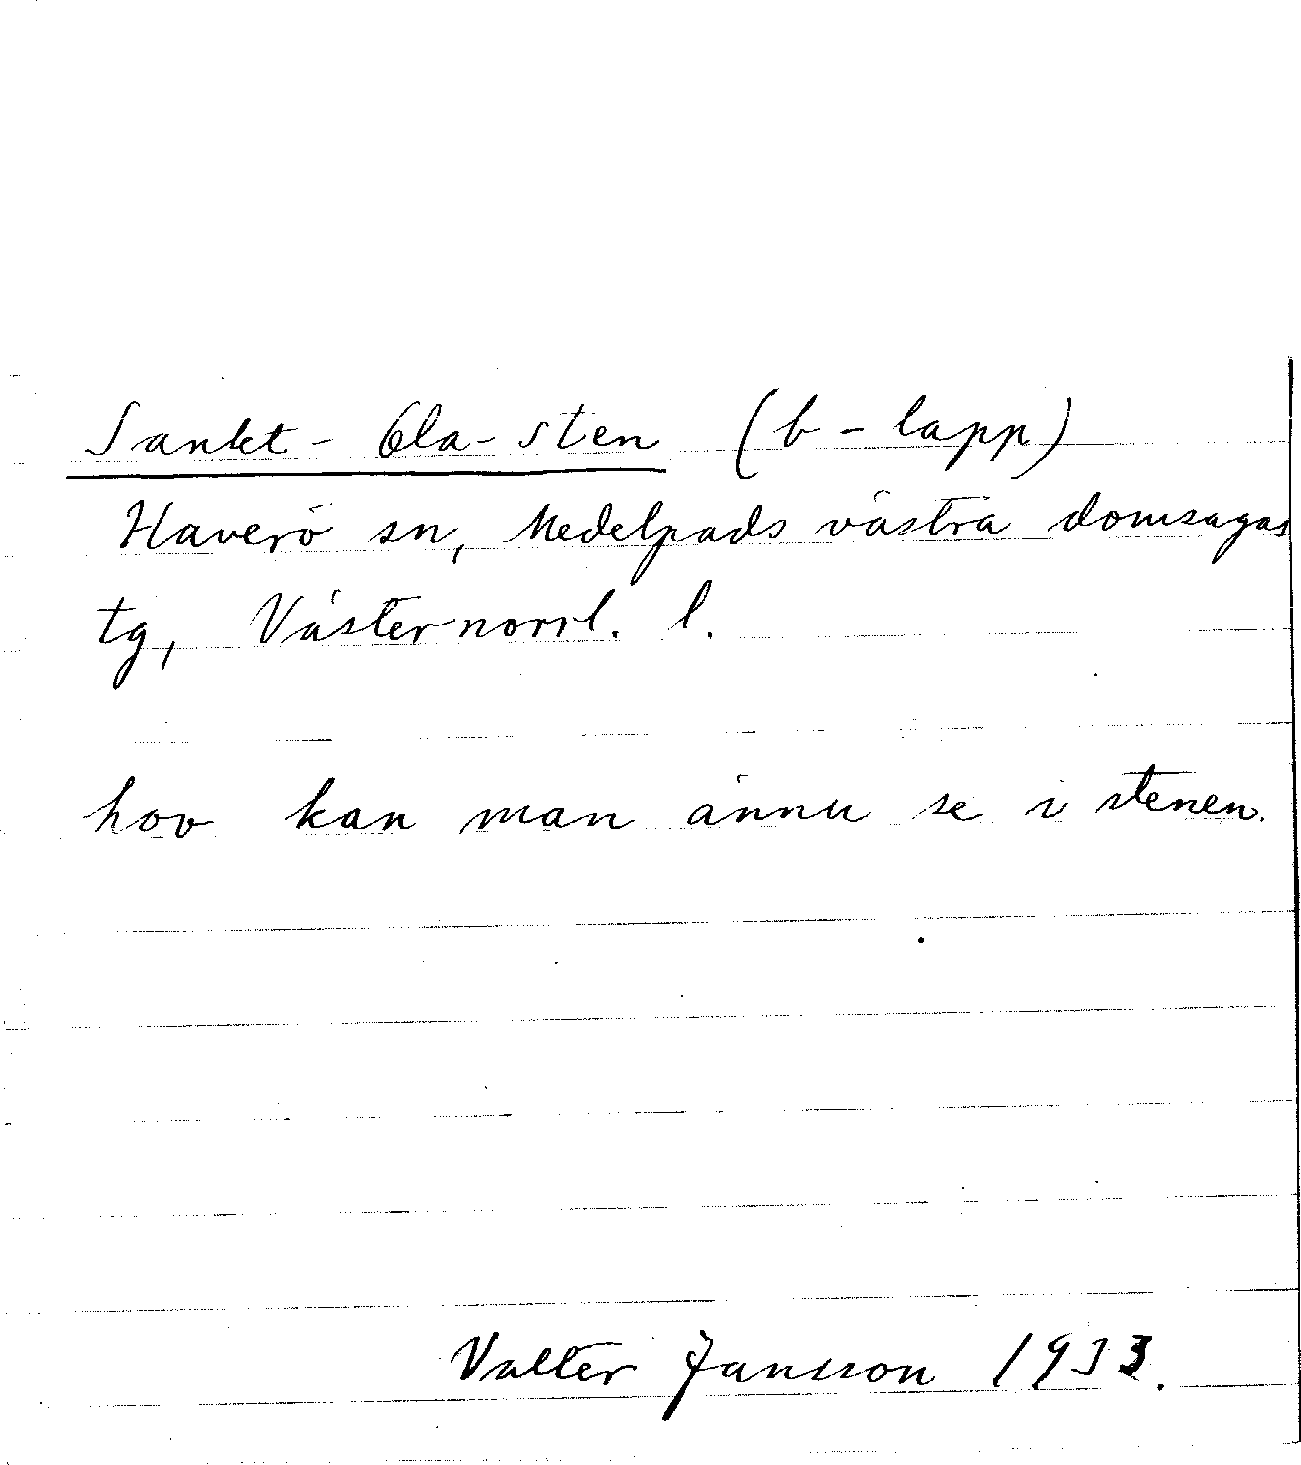 Sankt-Ola-sten (b-lapp)
Haverö sn, Medelpads västra domsagas
tg, Västernorrl. l.
hov kan man ännu se i stenen.
Valter Jansson 1933.